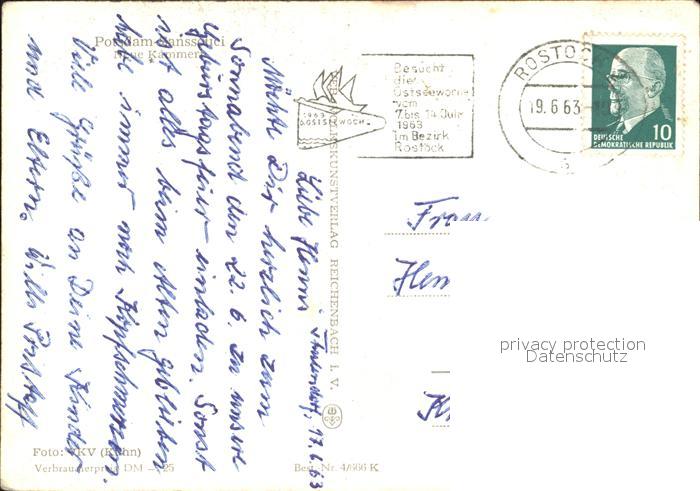 Potsdam-Sanssouci
Neue Kammern
Liebe Henni! 17.6.63
Möchte Dich herzlich zum
Sonnabend den 22. 6. zu unsere
Geburtstagsfeier einladen. Sonst
ist alles beim Alten geblieben
habe immer noch Kopfschmerzen.
Viele Grüße an Deine Kinder
und Eltern, Willi
Foto: VKV (Kühn)
Verbraucherpreis DM –,25
Best.-Nr. 4/666 K
VOLKSKUNSTVERLAG REICHENBACH I. V.
1963
OSTSEEWOCHE
Besucht
die
Ostseewoche
vom
7. bis 14. Juli
1963
im Bezirk
Rostock
ROSTOCK
19.6.63
10
DEUTSCHE
DEMOKRATISCHE REPUBLIK
Frau
Hen
K
privacy protection
Datenschutz